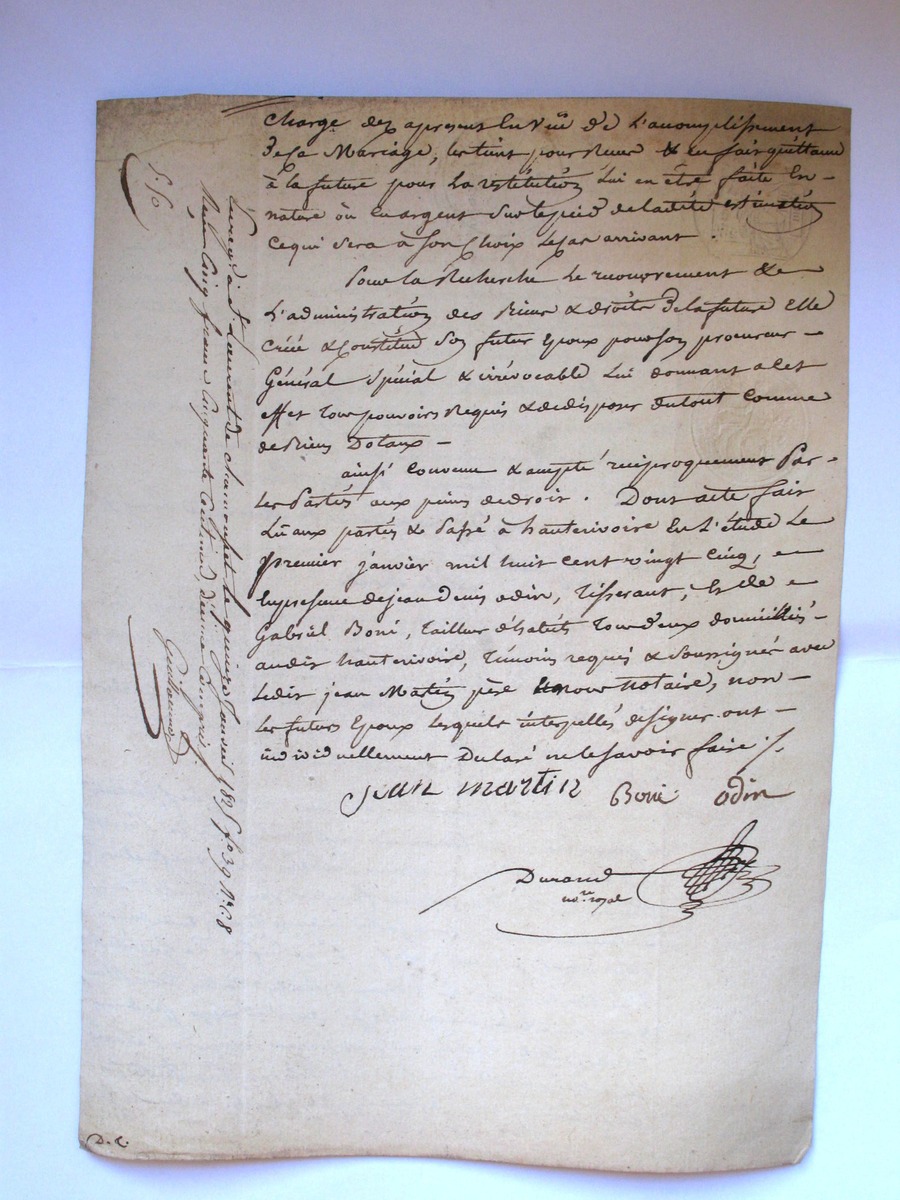 charge dez apresent En Vüe de L'accomplissement
de Ce Mariage, les tient pour Reçus & en fait quittance
à la future pour La restitution Lui en être faite En
nature ou En argent Sur le pied de ladite estimation
ce qui Sera à Son Choix Le Cas arrivant.
Pour la Recherche Le recouvrement &
L'administration des Biens & droits de la future Elle
Créé & Constitue Son futur Epoux pour Son procureur
Général Spécial & irrévocable Lui donnant a cet
effet Tous pouvoirs Requis & de disposer du tout Comme
de Biens Dotaux
ainsi Convenu & accepté réciproquement Par
Les Parties aux peines de droit. Dont acte fait
Lû aux parties & Passé à hauterivoire En L'étude Le
premier janvier mil huit cent vingt Cinq, en
la presence de jean Denis odin, Tisserant, & de
Gabriel Boni, Tailleur d'habits Tous deux domiciliés
audit hauterivoire, Témoins requis & Soussignés avec
Ledit jean Martin père & nous notaire, non
Les futurs Epoux Lesquels interpellés de signer ont
individuellement Déclaré ne le Savoir faire ./.
jean martin Boni odin
Durand
nore royal
Enregé à St Laurent de chamousset le quinze Janvier 1825 fo 39 No C. 8
Reçu Cinq francs Cinquante Centimes, dixième Compris
Guillermin
5. 50
D. C.